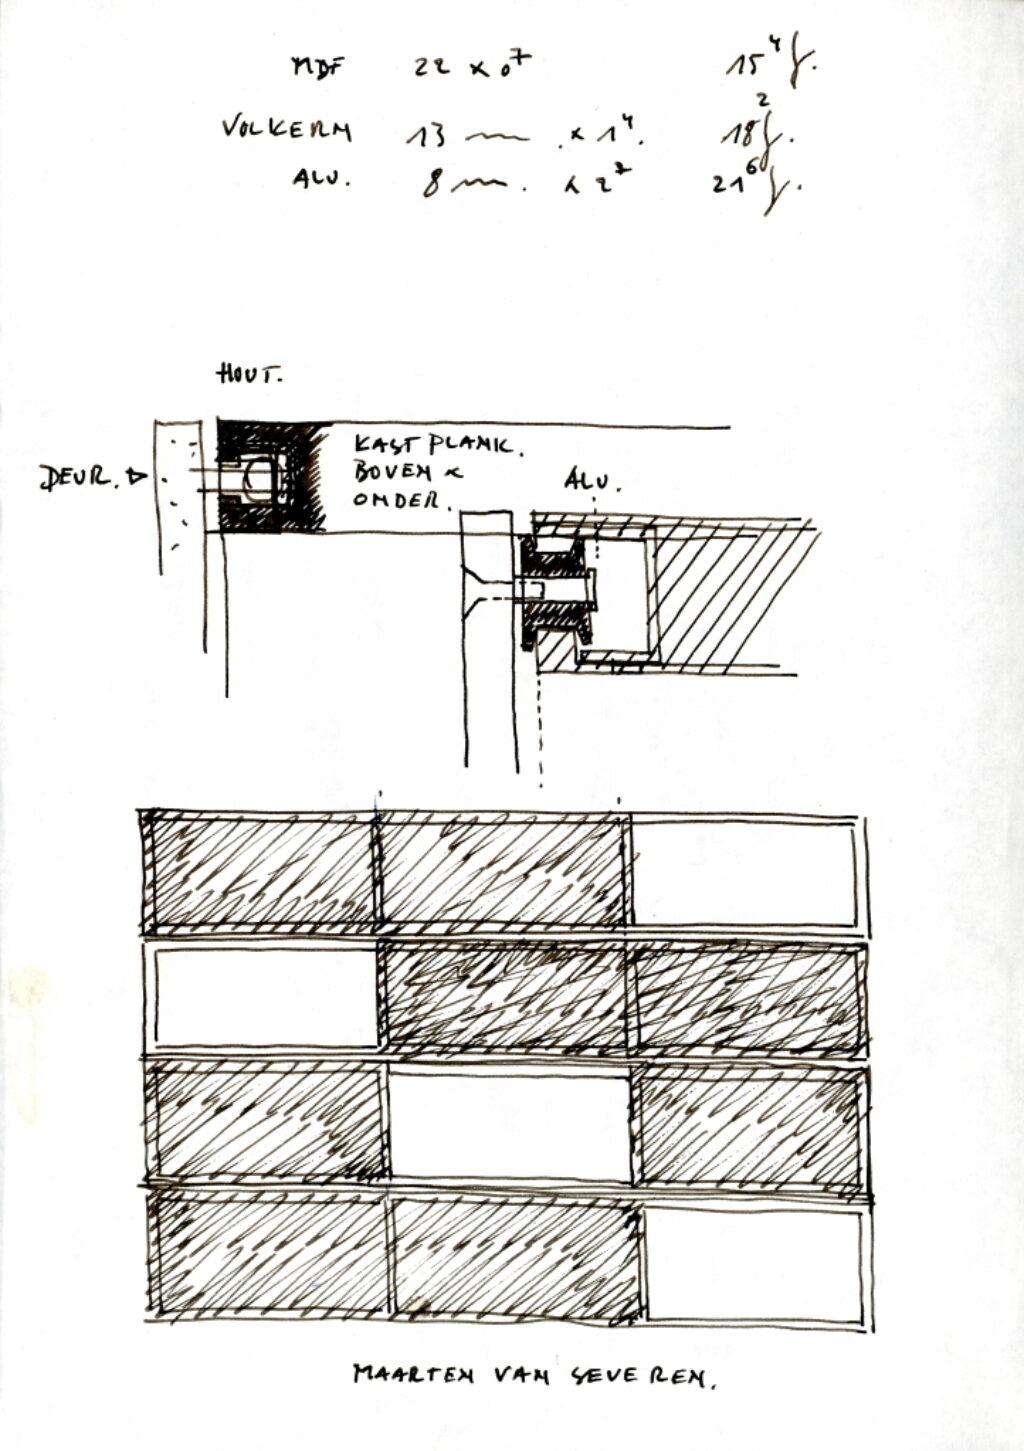 MDF 22 x 0⁷ 15⁴ f.
VOLKERN 13 mm . x 1⁴. 18² f.
ALU. 8 mm. x 2⁷ 21⁶ f.
HOUT.
KAST PLANK.
BOVEN &
ONDER.
DEUR.
ALU.
MAARTEN VAN SEVEREN.